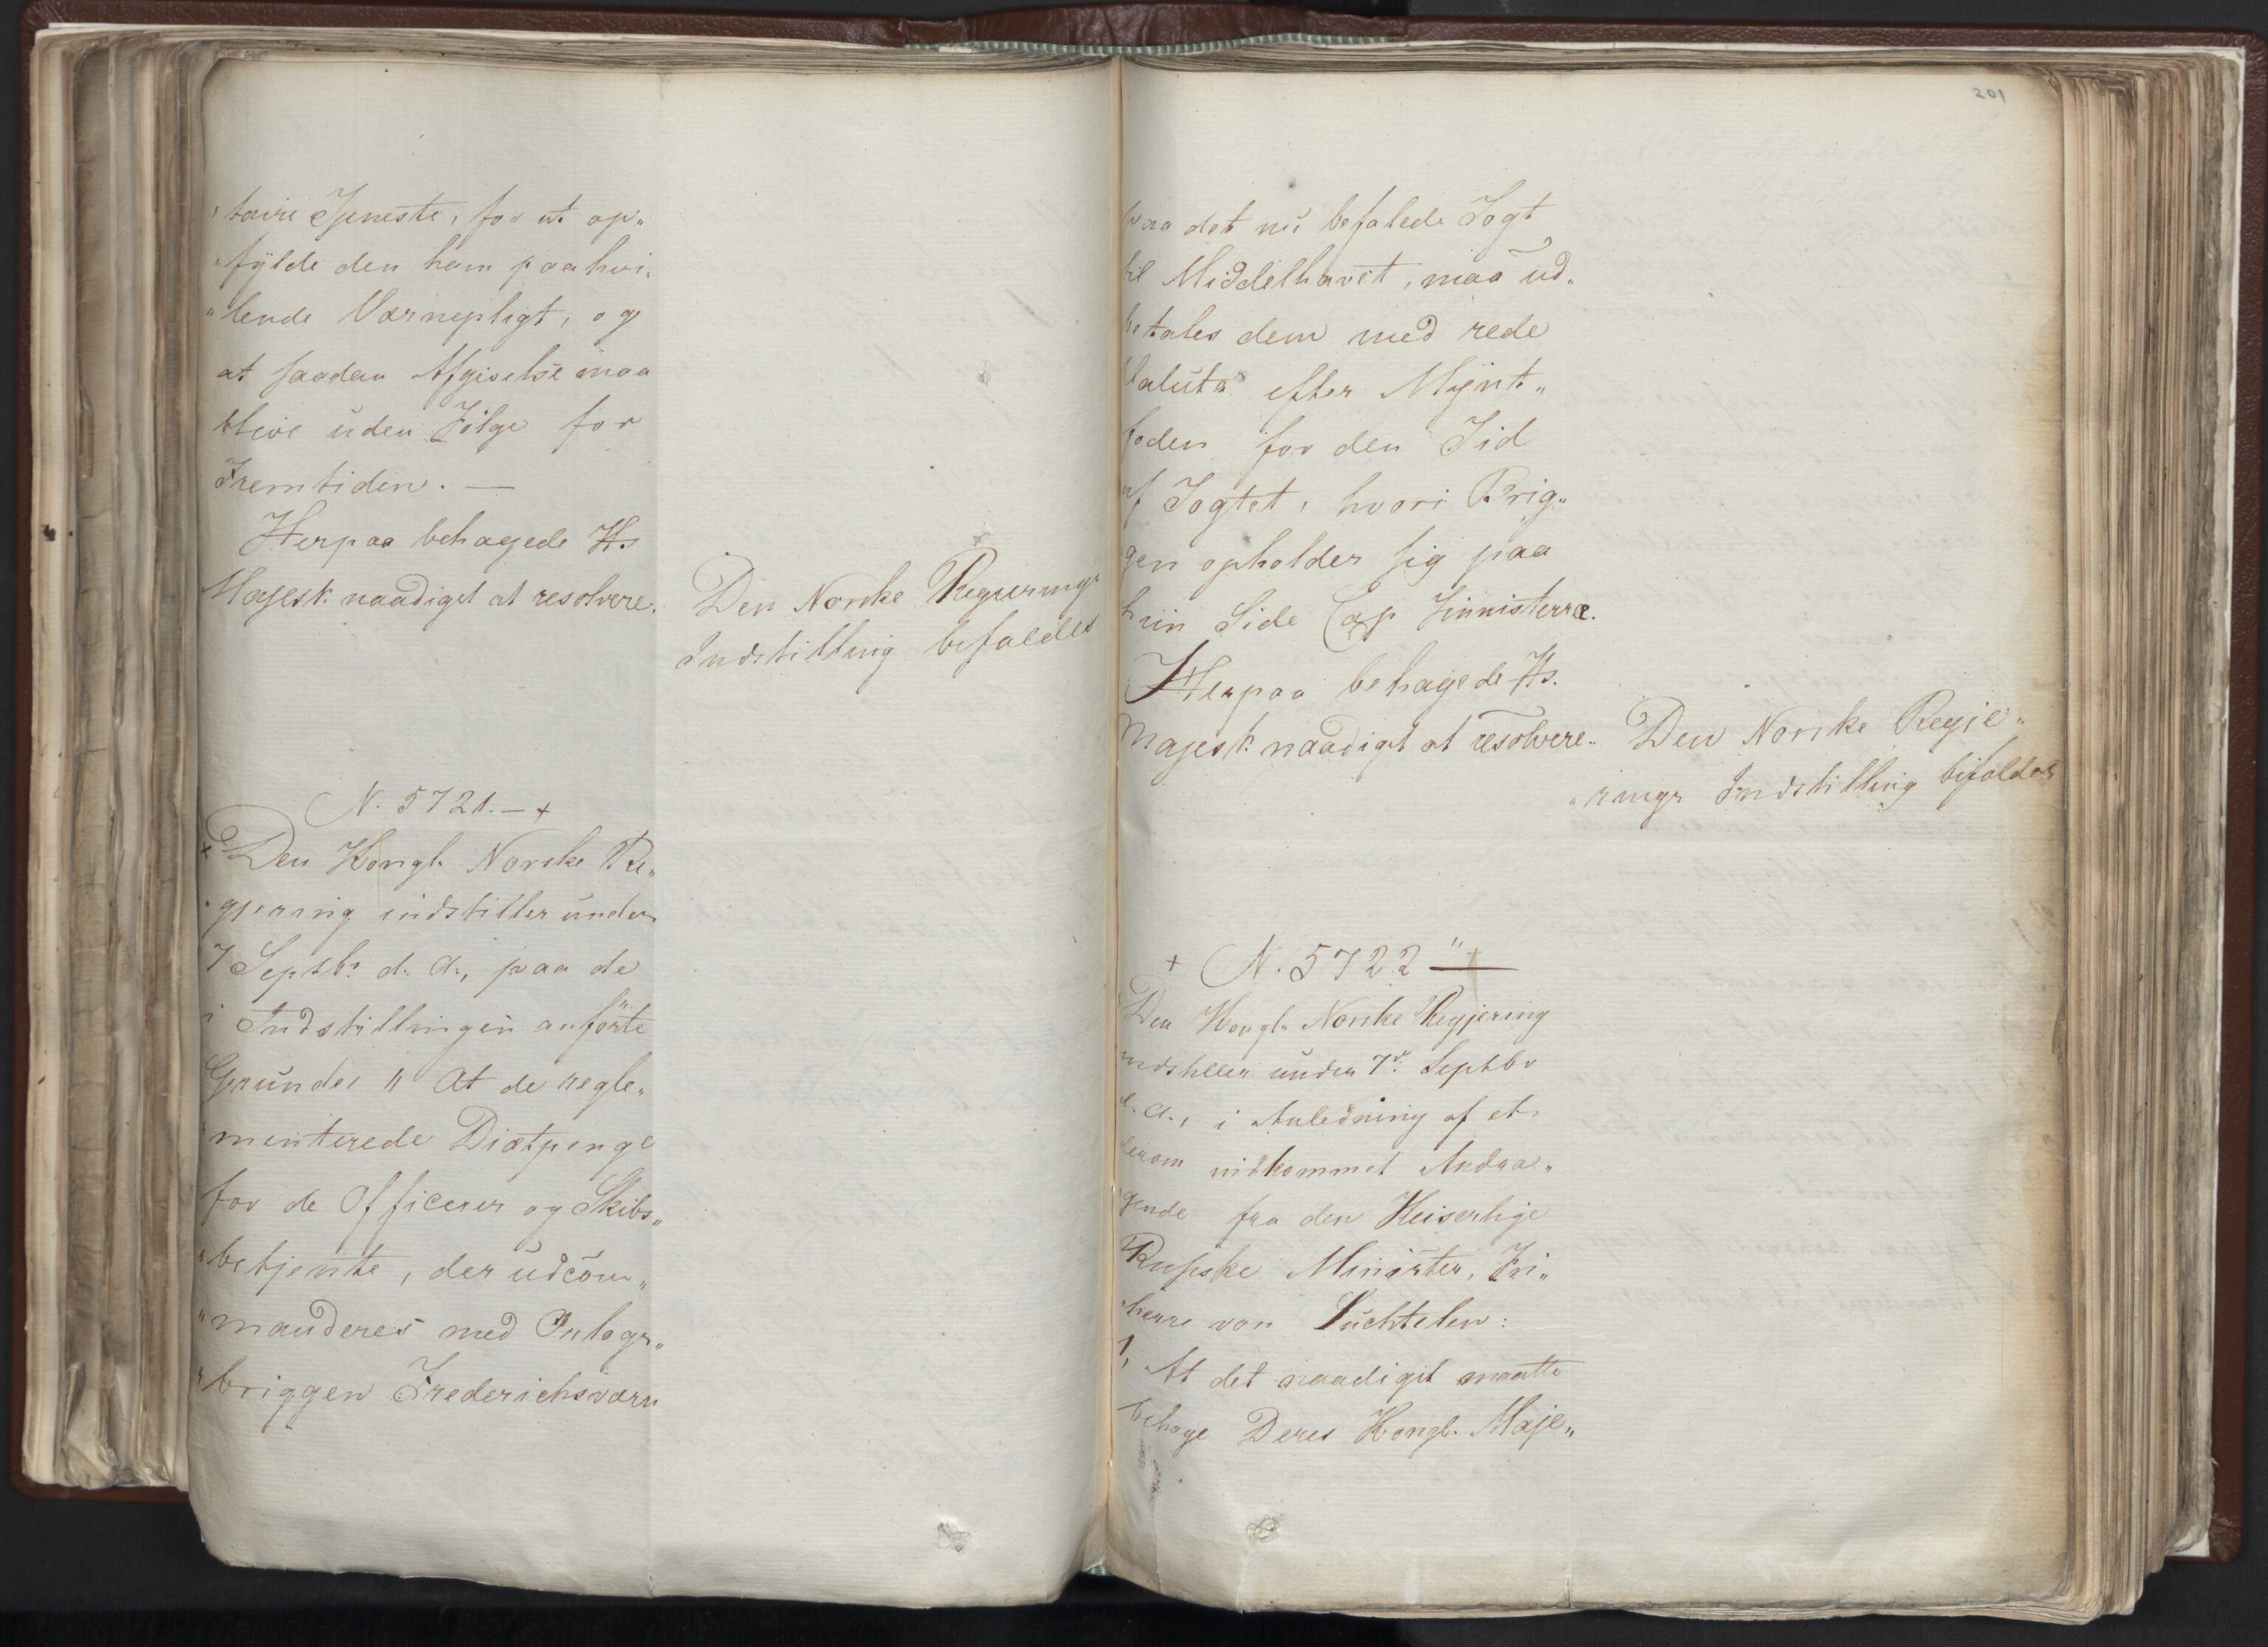 „taire Tjeneste, for at op„
„fylde den ham paahvi„
„lende Værnepligt, og
at saadan Afgivelse maa
blive uden Følge for
Fremtiden. —
Herpaa behagede Hs
Majest: naadigst at resolvere.
Den Norske Regierings
Indstilling bifaldes
N. 5721. — +
+ Den Kongl. Norske Re„
„gjering indstiller under
7 Septbr d. A., paa de
i Indstillingen anførte
Grunde: „ At de regle„
„menterede Diætpenge
for de Officerer og Skibs„
„betjente, der udcom„
„manderes med Orlogs„
„briggen Frederichsværn
201
paa det nu befalede Togt
til Middelhavet, maa ud„
betales dem med rede
Valuta efter Mynt„
foden for den Tid
af Togtet, hvori Brig„
gen opholder sig paa
hiin Side Cap Finnisterræ.
Herpaa behagede Hs.
Majest: naadigst at resolvere..
Den Norske Regie„
„rings Indstilling bifaldes
+ N. 5722 " +
Den Kongl. Norske Regjering
indstiller under 7de Septbr
d. A., i Anledning af et
derom indkommet Andra„
gende fra den Keiserlige
Russke Minister, Fri„
„herre von Suchtelen:
1, At det naadigst maatte
behage Deres Kongl. Maje„